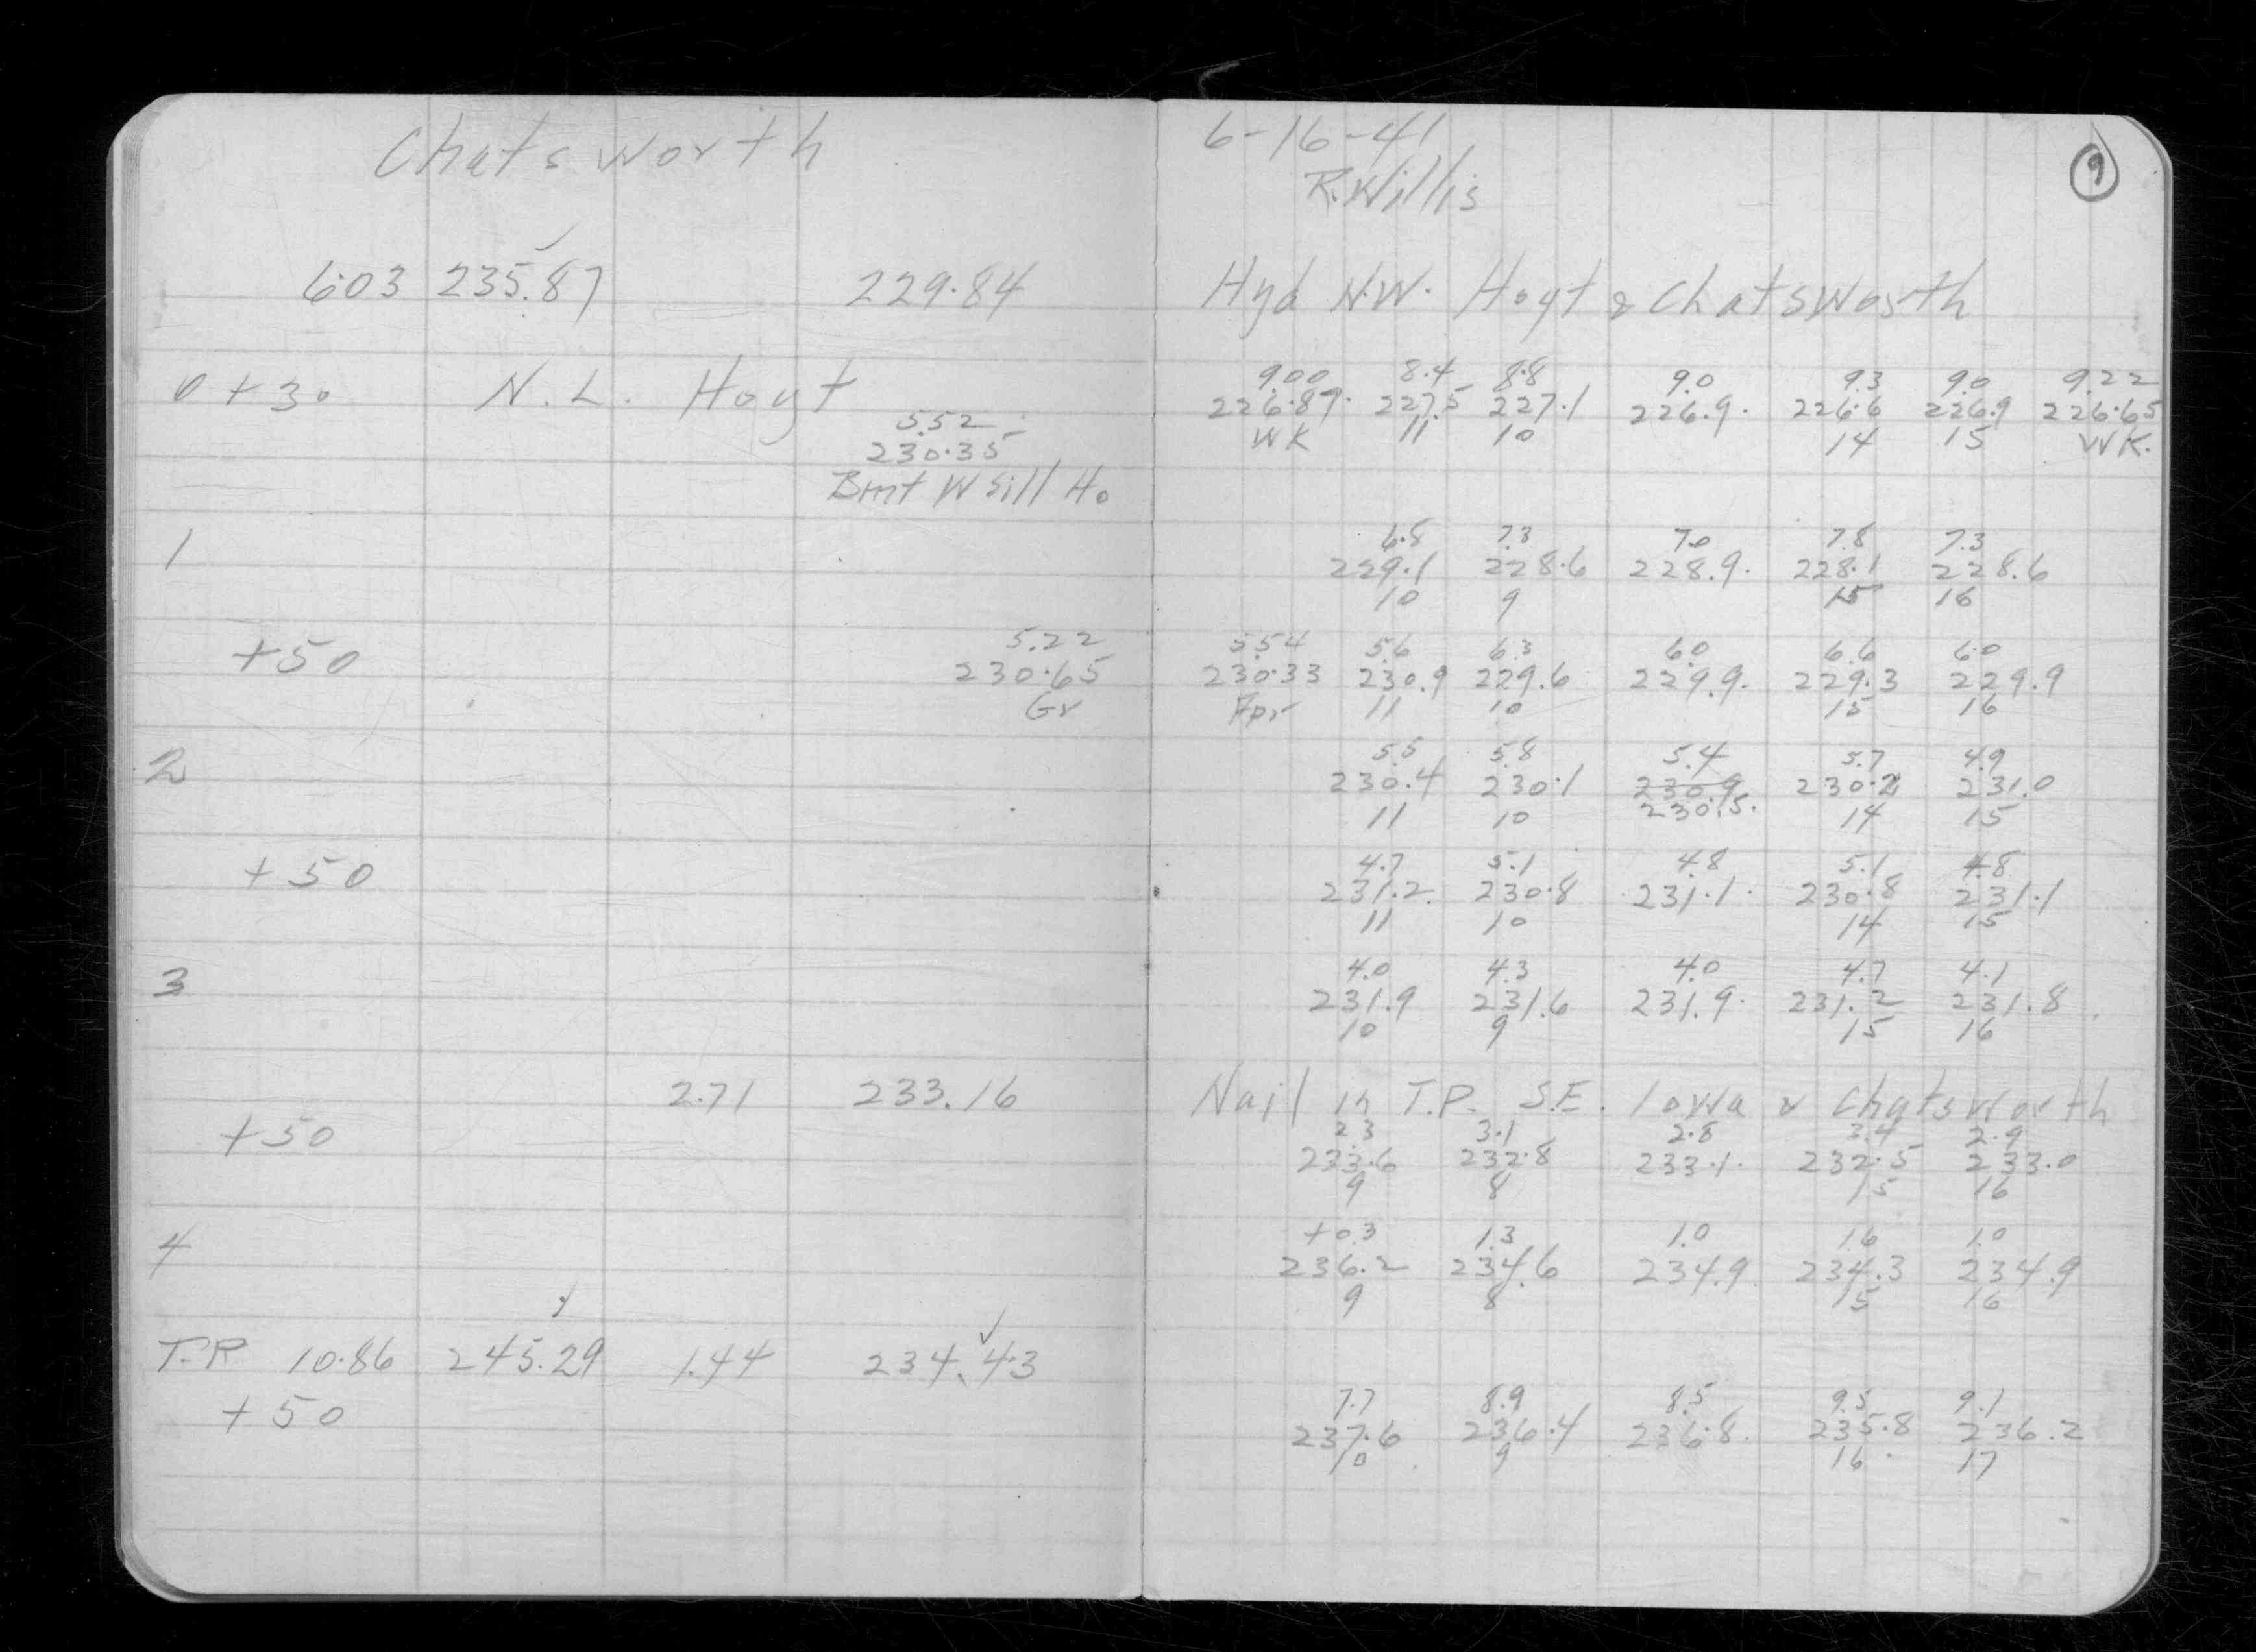 Chatsworth
6.03 235.87 229.84
0+30 N.L. Hoyt
5.52
230.35
Bmt W Sill Ho
1
+50 5.22
230.65
Gr
2
+50
3
2.71 233.16
+50
4
T.P 10.86 245.29 1.44 234.43
+50
6-16-41
R. Willis
9
Hyd N.W. Hoyt & Chatsworth
9.00 8.4 8.8 9.0 9.3 9.0 9.22
226.87 227.5 227.1 226.9 226.6 226.9 226.65
WK 11 10 14 15 WK.
6.8 7.3 7.0 7.8 7.3
229.1 228.6 228.9 228.1 228.6
10 9 15 16
5.54 5.6 6.3 6.0 6.6 6.0
230.33 230.9 229.6 229.9 229.3 229.9
Apr 11 10 15 16
5.5 5.8 5.4 5.7 4.9
230.4 230.1 230.9 230.2 231.0
230.5
11 10 14 15
4.7 5.1 4.8 5.1 4.8
231.2 230.8 231.1 230.8 231.1
11 10 14 15
4.0 4.3 4.0 4.7 4.1
231.9 231.6 231.9 231.2 231.8
10 9 15 16
Nail in T.P. S.E. Iowa & Chatsworth
2.3 3.1 2.8 3.4 2.9
233.6 232.8 233.1 232.5 233.0
9 8 15 16
+0.3 1.3 1.0 1.6 1.0
236.2 234.6 234.9 234.3 234.9
9 8 15 16
7.7 8.9 8.5 9.5 9.1
237.6 236.4 236.8 235.8 236.2
10 9 16 17